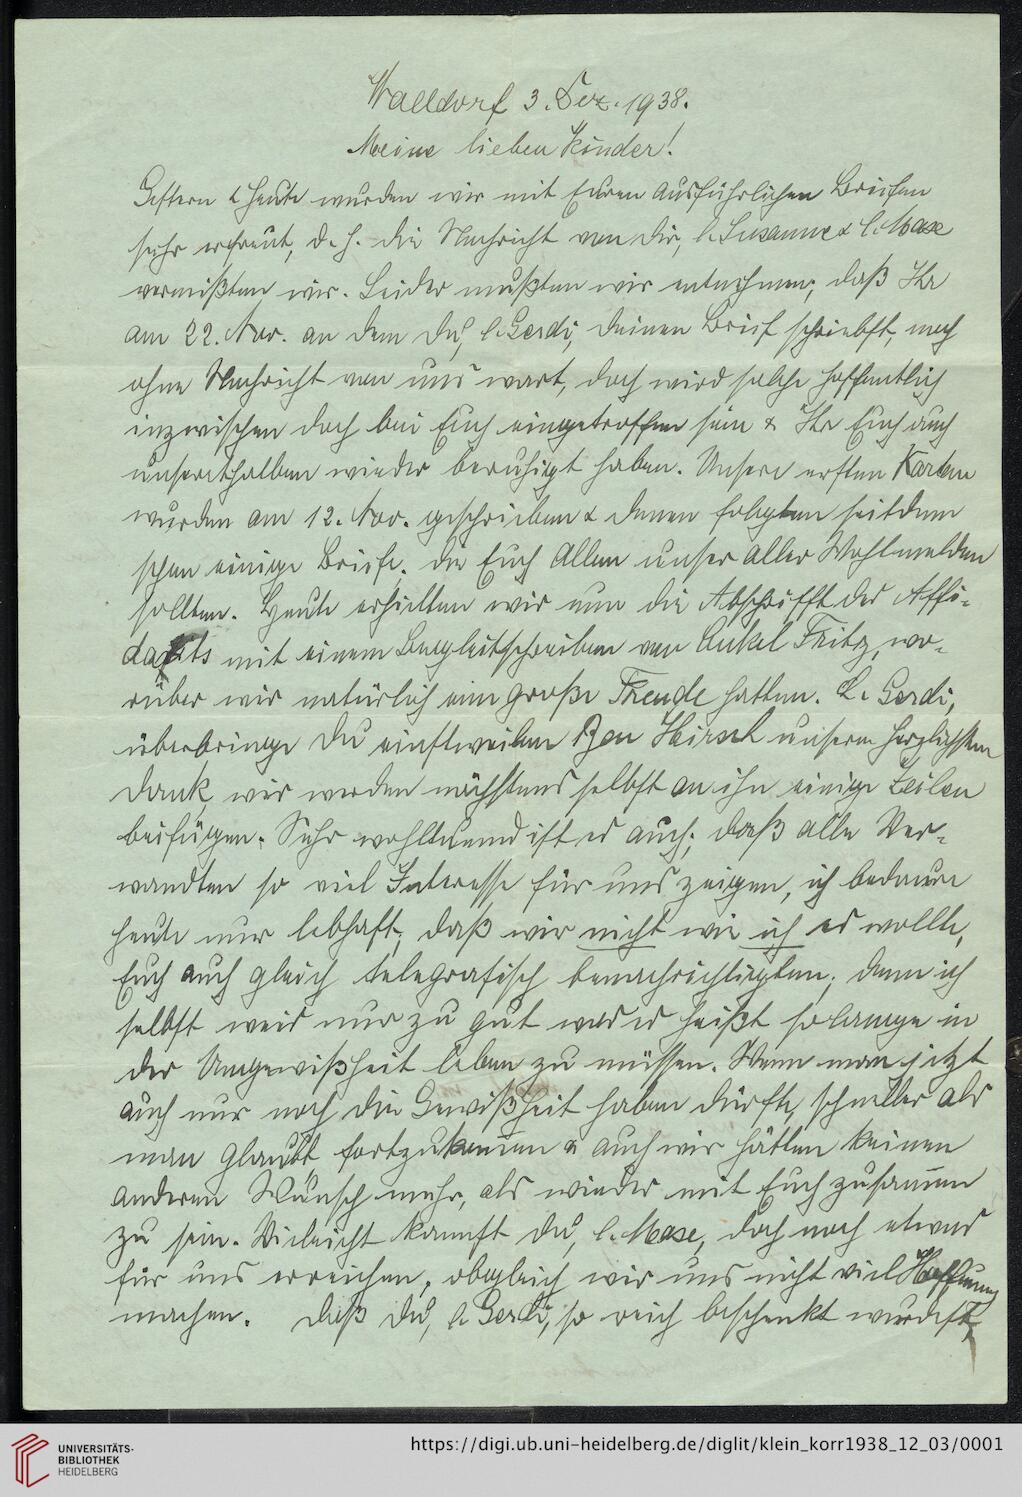 Walldorf 3. Dez. 1938.
Meine lieben Kinder!
Gestern & heute wurden wir mit Euren ausführlichen Briefen
sehr erfreut, d. h. die Nachricht von Dir, l. Susanne & l. Maxe
vermißten wir. Leider mußten wir entnehmen, daß Ihr
am 22. Nov. an dem Du, l. Gerdi, Deinen Brief schriebst, noch
ohne Nachricht von uns wart, doch wird solche hoffentlich
inzwischen doch bei Euch eingetroffen sein & Ihr Euch auch
unserthalben wieder beruhigt haben. Unsere ersten Karten
wurden am 12. Nov. geschrieben & denen folgten seitdem
schon einige Briefe, die Euch Allen unser aller Wohl melden
sollten. Heute erhielten wir nun die Abschrift des Affi-
davits mit einem Begleitschreiben von Onkel Fritz, wo-
rüber wir natürlich eine große Freude hatten. L. Gerdi,
überbringe Du einstweilen Ben Hirsch unseren herzlichsten
Dank, wir werden nächstens selbst an ihn einige Zeilen
beifügen. Sehr wohltuend ist es auch, daß alle Ver-
wandten so viel Interesse für uns zeigen, ich bedaure
heute nur lebhaft, daß wir nicht wie ich es wollte,
Euch auch gleich telegrafisch benachrichtigten, denn ich
selbst weis nur zu gut was es heißt so lange in
der Ungewißheit leben zu müssen. Wenn man jetzt
auch nur noch die Gewißheit haben dürfte, schneller als
man glaubt, fortzukommen & auch wir hätten keinen
anderen Wunsch mehr, als wieder mit Euch zusammen
zu sein. Vieleicht kannst Du, l. Maxe, doch noch etwas
für uns erreichen, obgleich wir uns nicht viel Hoffnung
machen. Daß Du, l. Gerdi, so reich beschenkt wurdest,
UNIVERSITÄTS-
BIBLIOTHEK
HEIDELBERG
https://digi.ub.uni-heidelberg.de/diglit/klein_korr1938_12_03/0001